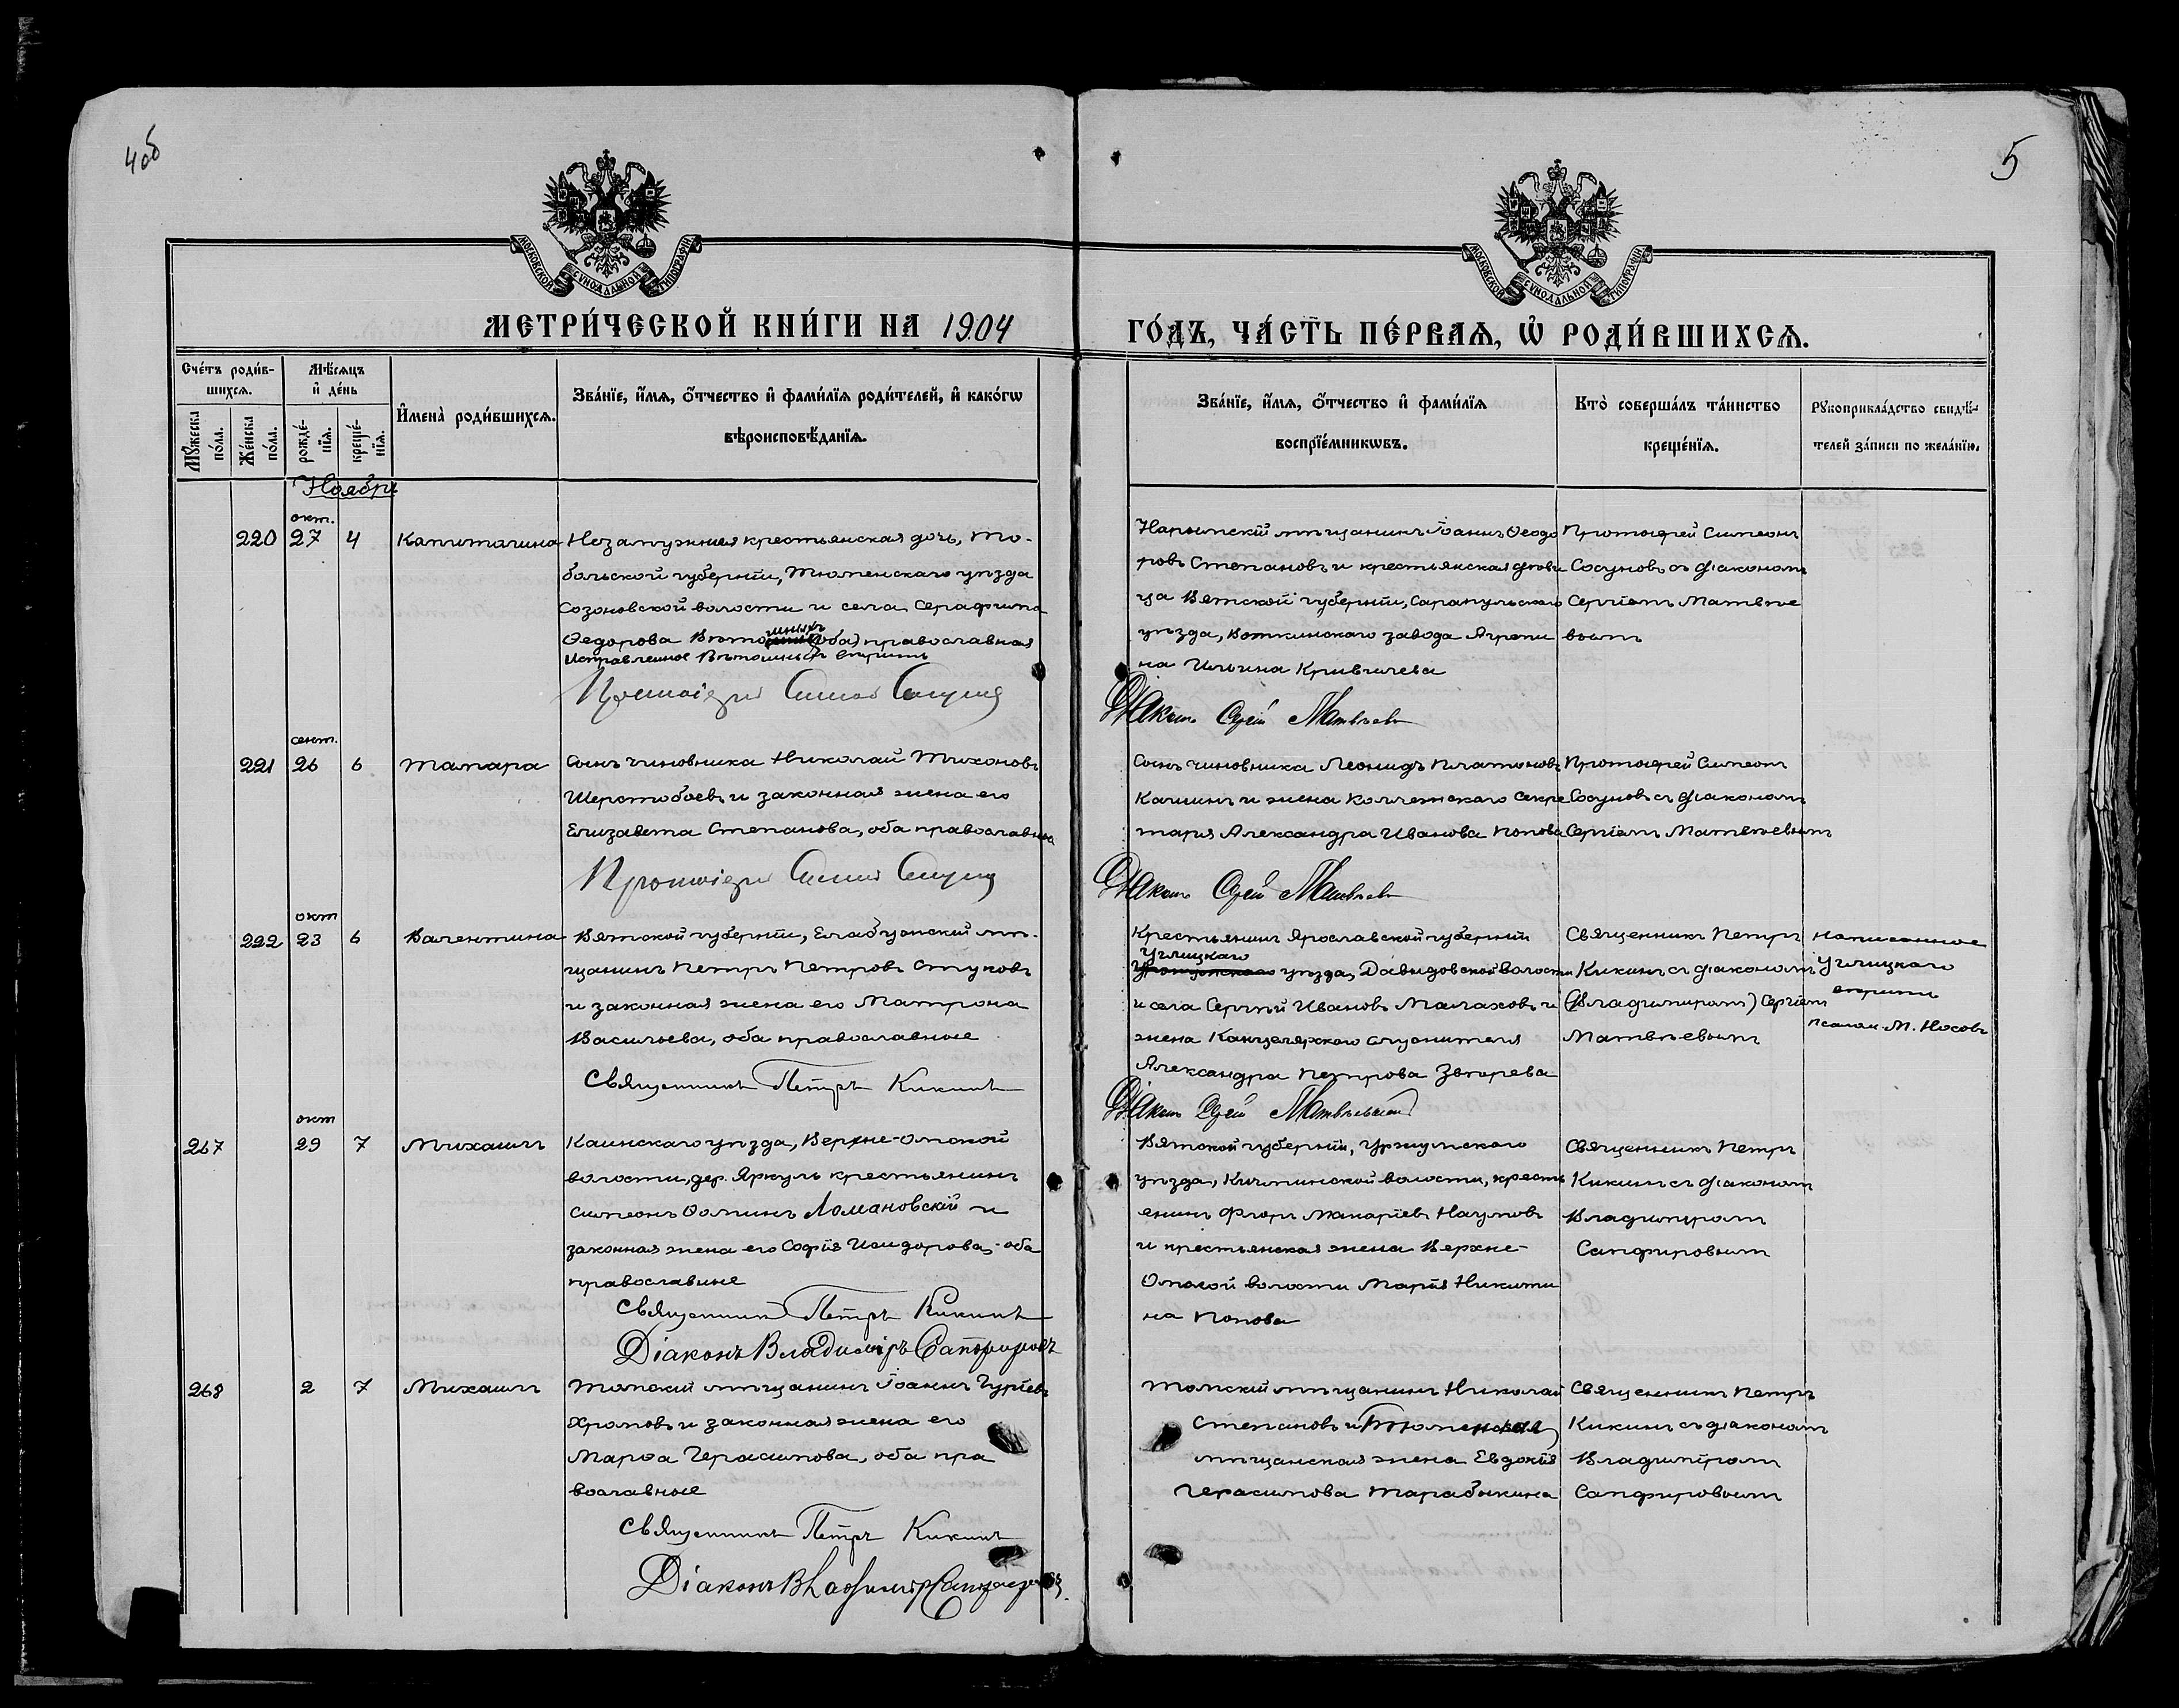 4об
5
МОСКОВСКОЙ СѴНОДАЛЬНОЙ ТИПОГРАФІИ
МОСКОВСКОЙ СѴНОДАЛЬНОЙ ТИПОГРАФІИ
МЕТРИ́ЧЕСКОЙ КНИ́ГИ НА 1904
ГО́ДЪ, ЧА́СТЬ ПЕ́РВАѦ, Ѡ РОДИ́ВШИХСѦ.
Сче́тъ роди́в-
шихсѧ.
Мꙋ́жеска
по́ла.
Же́нска
по́ла.
Мѣ́сѧцъ
и де́нь
рожде́-
нїѧ.
креще́-
нїѧ.
Имена̀ роди́вшихсѧ.
Зва́нїе, и́мѧ, ѻ́тчество и фами́лїѧ роди́телей, и како́гѡ
вѣроисповѣ́данїѧ.
Зва́нїе, и́мѧ, ѻ́тчество и фами́лїѧ
воспрїе́мникѡвъ.
Кто̀ соверша́лъ та́инство
креще́нїѧ.
Рꙋкоприкла́дство свидѣ́-
телей за́писи по жела́нїю.
Ноябрь
окт.
220 27 4 Капитолина
Незамужняя крестьянская дочь, То-
больской губерніи, Тюменскаго уѣзда
Созоновской волости и села Серафима
Ѳедорова Вѣто шныхъ (оба) православная
Исправленное Вѣтошныхъ вѣрить
Протоіерей Симеонъ Сосуновъ
Нарымскій мѣщанинъ Іоаннъ Ѳеодо
ровъ Степановъ и крестьянская дѣви
ца Вятской губерніи, Сарапульскаго
уѣзда, Воткинскаго завода Агрипи
на Ильина Кривилева
Діаконъ Сергій Матвѣевъ
Протоіерей Симеонъ
Сосуновъ съ діакономъ
Сергіемъ Матвѣе
вымъ
сент.
221 26 6 Тамара
Сынъ чиновника Николай Тихоновъ
Шерстобоевъ и законная жена его
Елизавета Степанова, оба православные
Протоіерей Симеонъ Сосуновъ
Сынъ чиновника Леонидъ Платоновъ
Качинъ и жена Коллежскаго Секре
таря Александра Иванова Попова
Діаконъ Сергій Матвѣевъ
Протоіерей Симеонъ
Сосуновъ съ діакономъ
Сергіемъ Матвѣевымъ
окт
222 23 6 Валентина
Вятской губерніи, Елабужскій мѣ-
щанинъ Петръ Петровъ Стуковъ
и законная жена его Матрона
Васильева, оба православные
Священникъ Петръ Кикинъ
Крестьянинъ Ярославской губерніи
Углицкаго
уѣзда, Давыдовской волости
и села Сергѣй Ивановъ Малаховъ и
жена Канцелярскаго служителя
Александра Петрова Звѣрева
Діаконъ Сергій Матвѣевскій
Священникъ Петръ
Кикинъ съ діакономъ
(Владимиромъ) Сергіемъ
Матвѣевымъ
написанное
Углицкаго
вѣрить
псалом. М. Носовъ
окт
267 29 7 Михаилъ
Каинскаго уѣзда, Верхне-Омской
волости, дер. Яркуль крестьянинъ
Симеонъ Ѳоминъ Ломановскій и
законная жена его Софія Исидорова, - оба
православные
Священникъ Петръ Кикинъ
Діаконъ Владиміръ Сапфировъ
Вятской губерніи, Уржумскаго
уѣзда, Кичминской волости, кресть
янинъ Флоръ Макаріевъ Наумовъ
и крестьянская жена Верхне-
Омской волости Марія Никити
на Попова
Священникъ Петръ
Кикинъ съ діакономъ
Владимиромъ
Сапфировымъ
268 2 7 Михаилъ
Томскій мѣщанинъ Іоаннъ Гуріевъ
Хромовъ и законная жена его
Марѳа Герасимова, оба пра
вославные
Священникъ Петръ Кикинъ
Діаконъ Владиміръ Сапфировъ
Томскій мѣщанинъ Николай
Степановъ и Тюменская
мѣщанская жена Евдокія
Герасимова Тарабыкина
Священникъ Петръ
Кикинъ съ діакономъ
Владиміромъ
Сапфировымъ